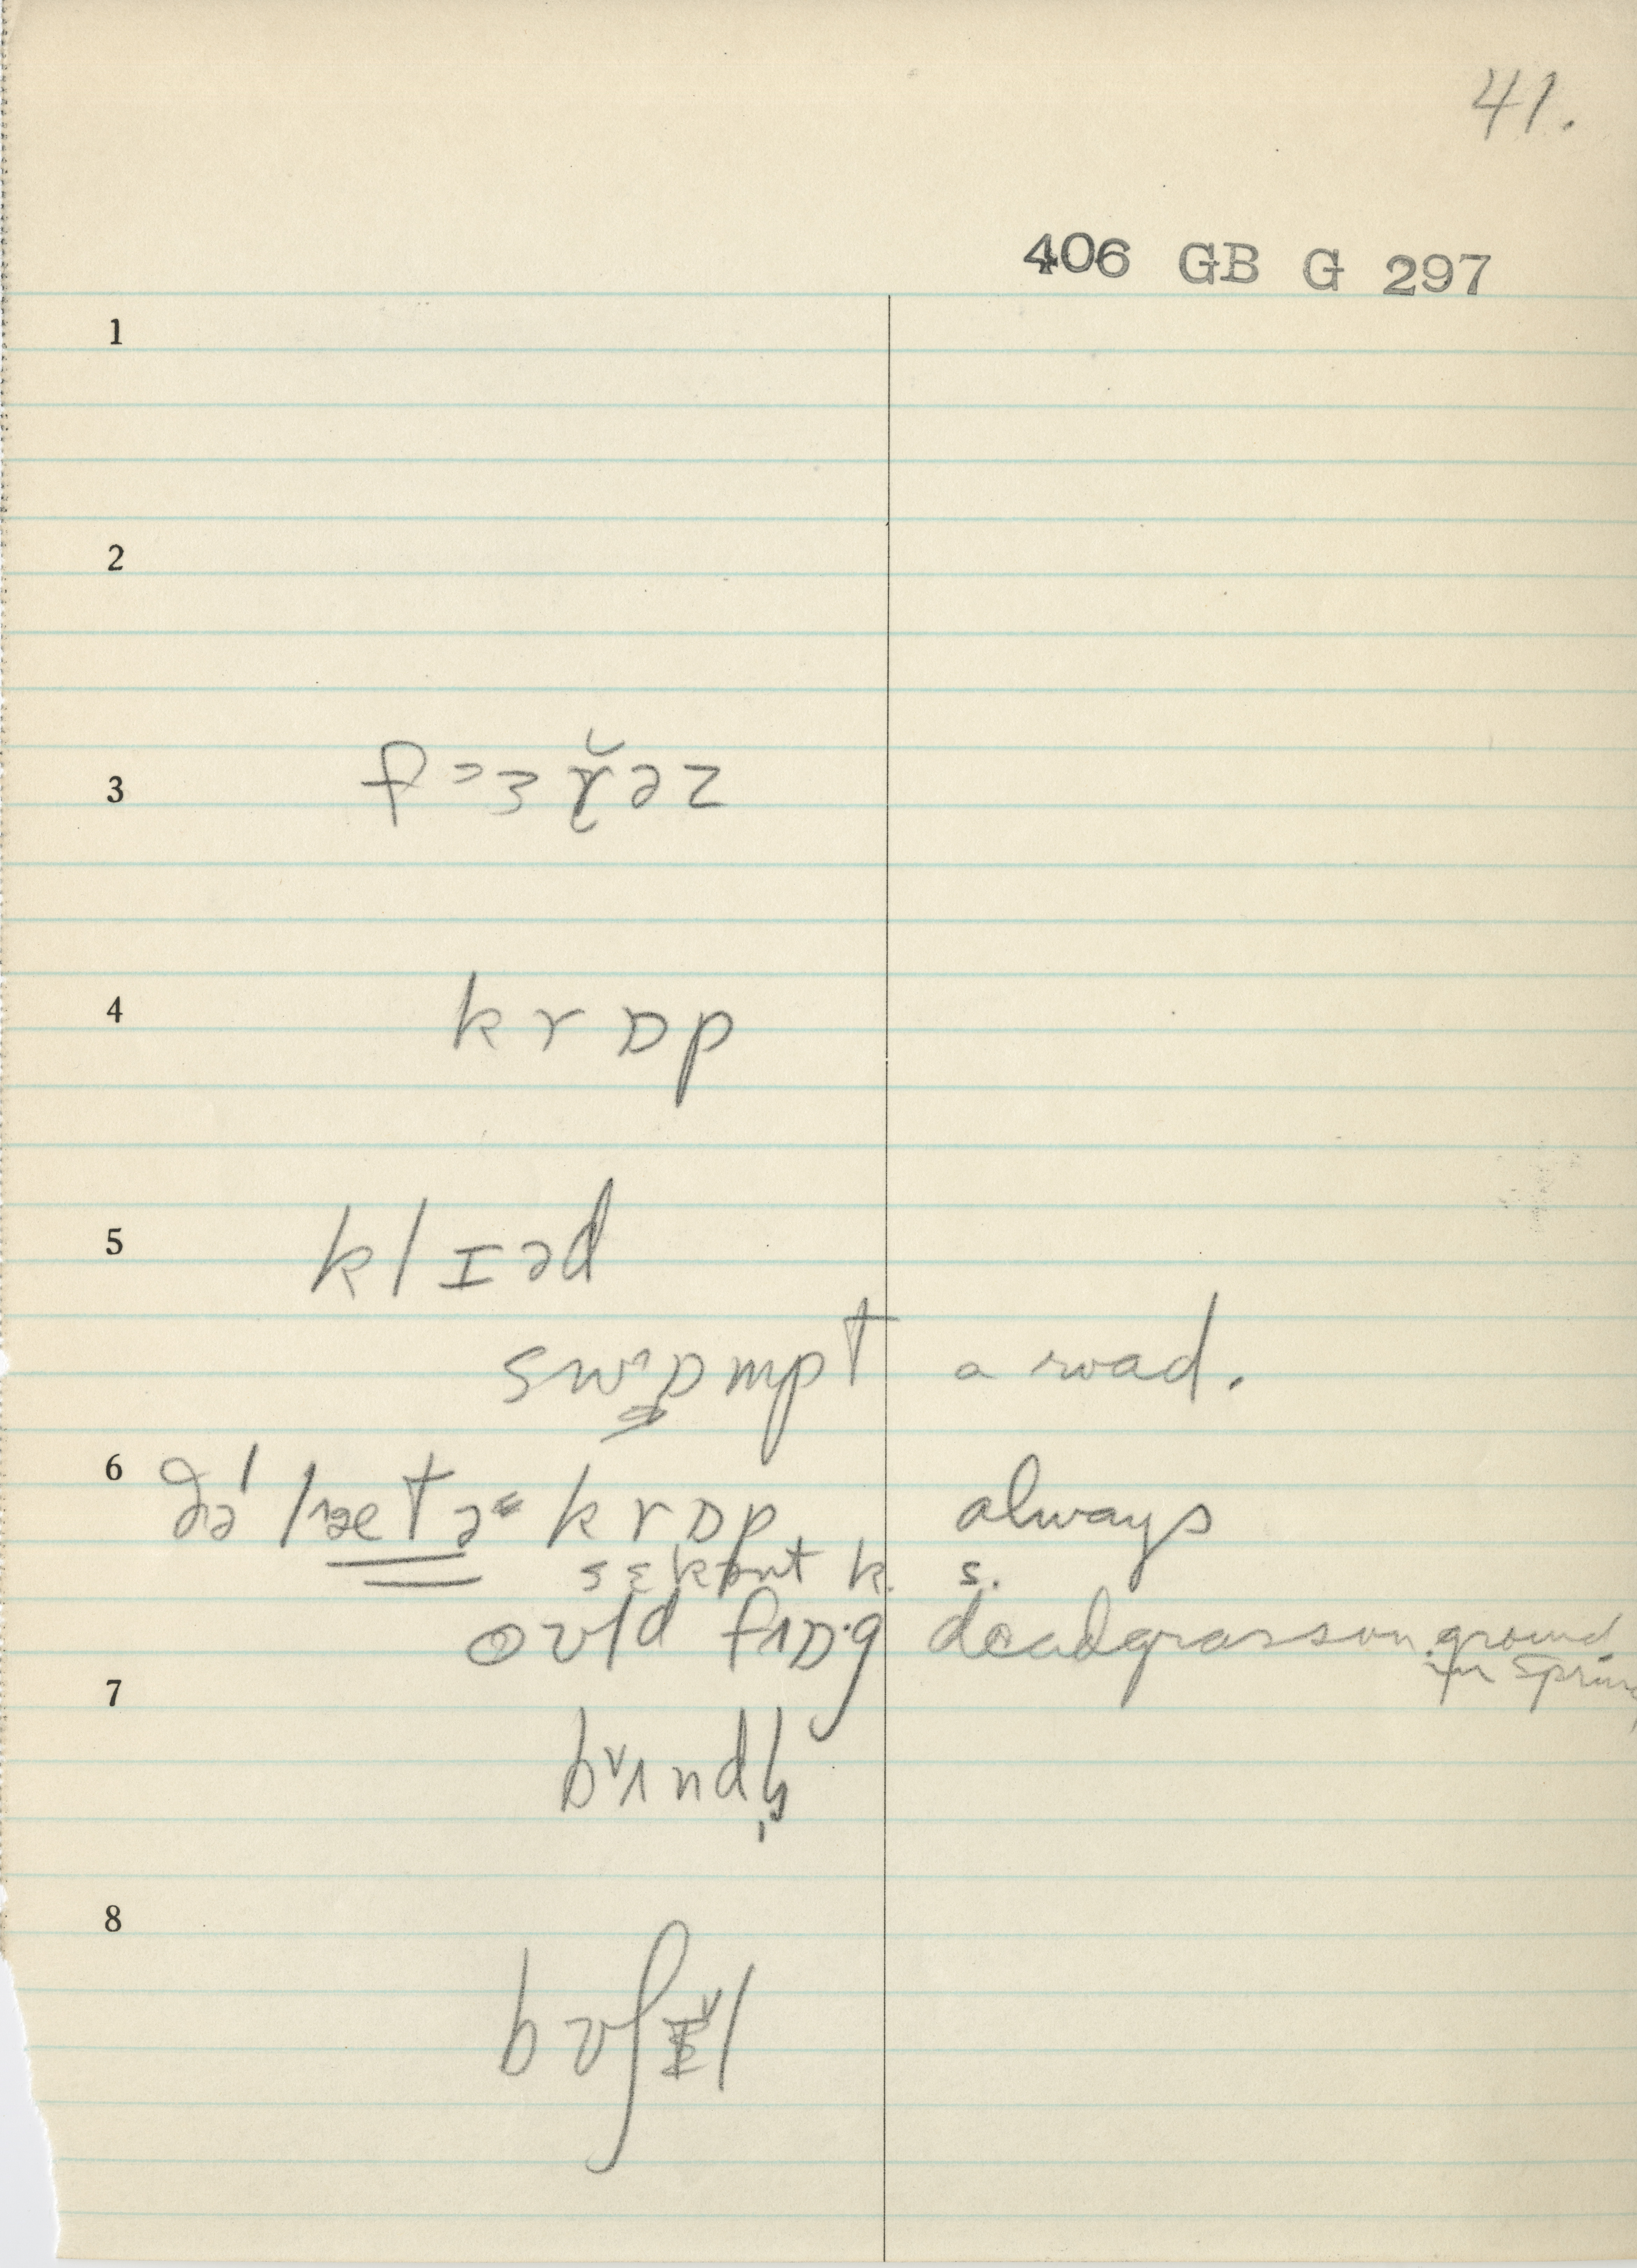 41.
406 GB G 297
1
2
3
4 krɒp
5 klɪəd
swɒmpt a road.
6 ðə' lætə krɒp always
sɛkənt k. s.
oʊld fɒ·g dead grass on ground
in spring
7 bʌndḷ
8 bʊʃɪl